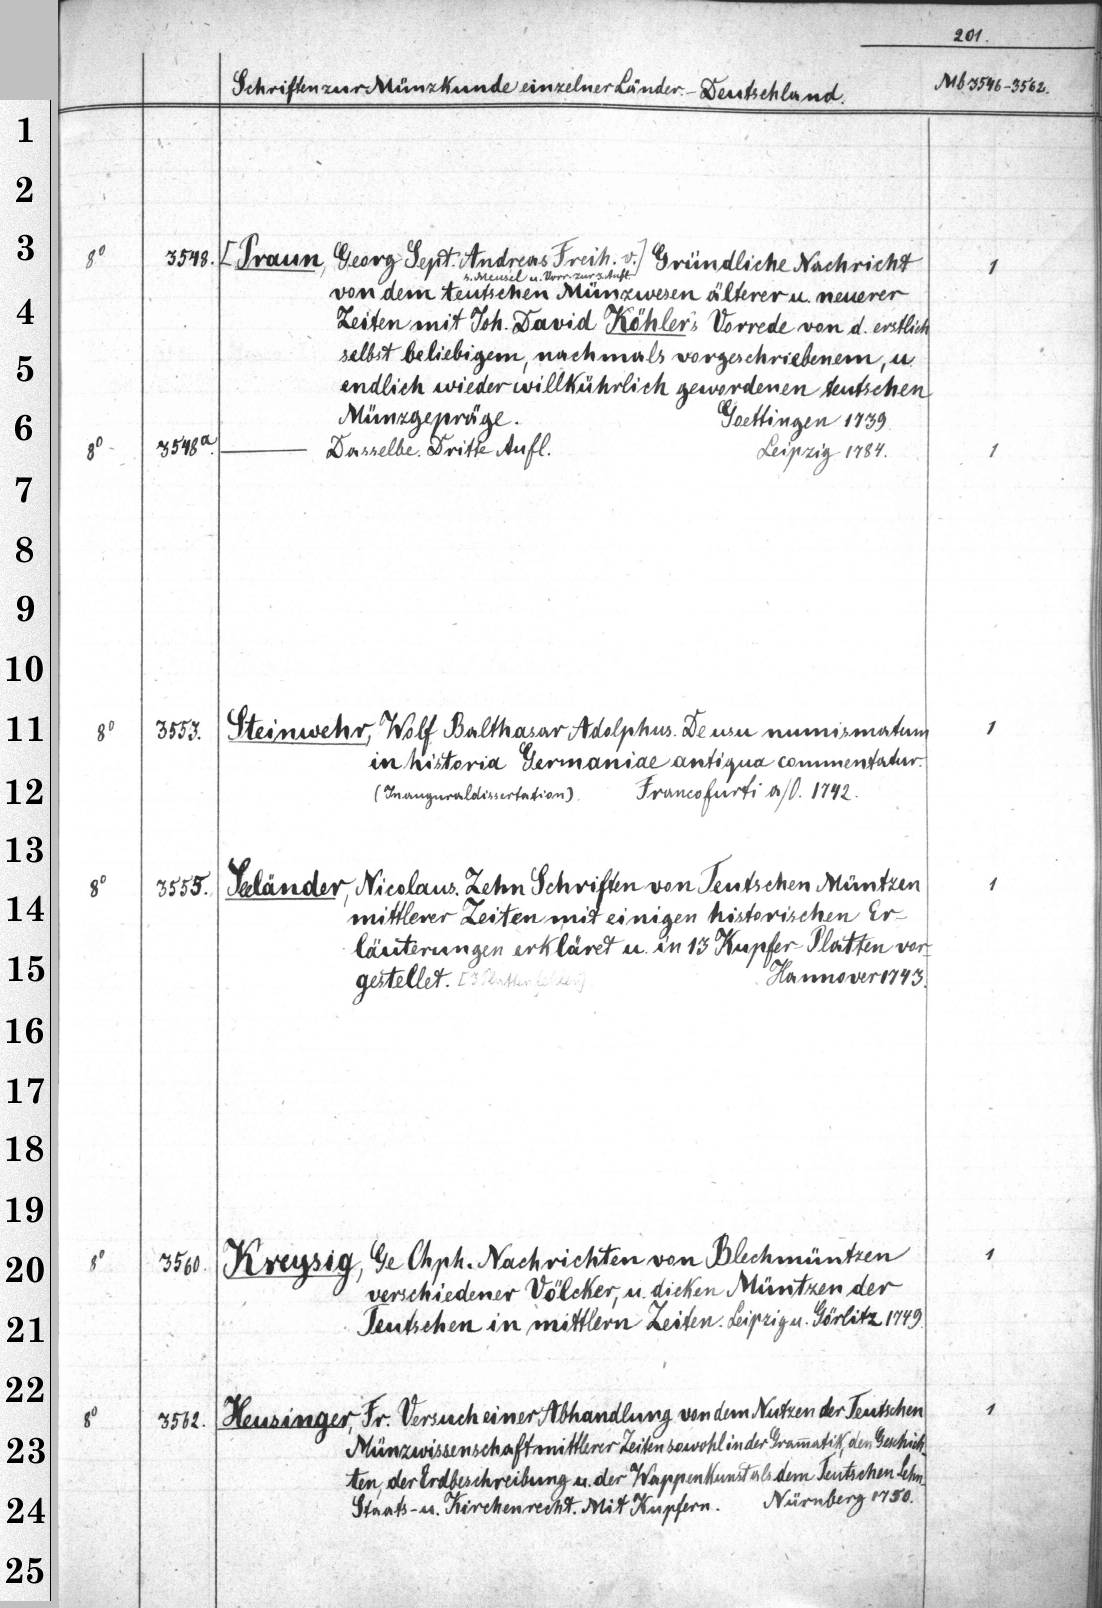 201.
Schriften zur Münzkunde einzelner Länder. - Deutschland. Mb 3546-3562.
1
2
3 8° 3548. [Praun, Georg Sept. Andreas Freih. v.] Gründliche Nachricht 1
s. Meusel u. Vorr. zur 3. Aufl.
von dem teutschen Münzwesen älterer u. neuerer
4 Zeiten mit Joh. David Köhler's Vorrede von d. erstlich
5 selbst beliebigem, nachmals vorgeschriebenem, u.
endlich wieder willkührlich gewordenen teutschen
6 Münzgepräge. Goettingen 1739.
8° 3548a. ——— Dasselbe. Dritte Aufl. Leipzig 1784. 1
7
8
9
10
11 8° 3553. Steinwehr, Wolf Balthasar Adolphus. De usu numismatum 1
in historia Germaniae antiqua commentatur.
12 (Inauguraldissertation). Francofurti a/O. 1742.
13
8° 3555. Seeländer, Nicolaus. Zehn Schriften von Teutschen Müntzen 1
14 mittlerer Zeiten mit einigen historischen Er-
läuterungen erkläret u. in 13 Kupfer-Platten vor-
15 gestellet. [3 Platten fehlen] Hannover 1743.
16
17
18
19
20 8° 3560. Kreysig, Ge Chph. Nachrichten von Blechmüntzen 1
verschiedener Völcker, u. dicken Müntzen der
21 Teutschen in mittlern Zeiten. Leipzig u. Görlitz 1749.
22
8° 3562. Heusinger, Fr. Versuch einer Abhandlung von dem Nutzen der Teutschen 1
23 Münzwissenschaft mittlerer Zeiten sowohl in der Gram̅atik, den Geschich-
ten, der Erdbeschreibung u. der Wappenkunst als dem Teutschen Lehn-
24 Staats- u. Kirchenrecht. Mit Kupfern. Nürnberg 1750.
25